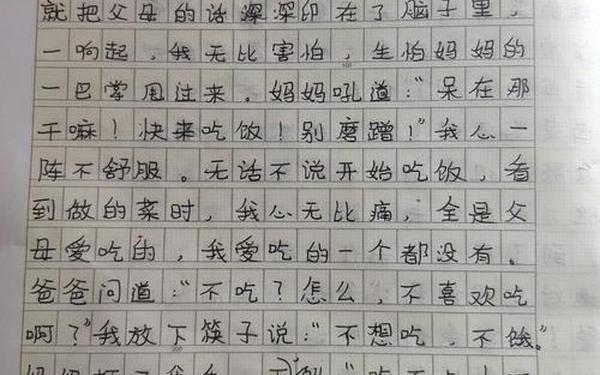 就把父母的话深深印在了脑子里，
一响起，我无比害怕，生怕妈妈的
一巴掌甩过来。妈妈吼道：“呆在那
干嘛！快来吃饭！别磨蹭！”我心一
阵不舒服。无话不说开始吃饭，看
到做的菜时，我心无比痛，全是父
母爱吃的，我爱吃的一个都没有。
爸爸问道：“不吃？怎么，不喜欢吃
啊？”我放下筷子说：“不想吃，不饿。”